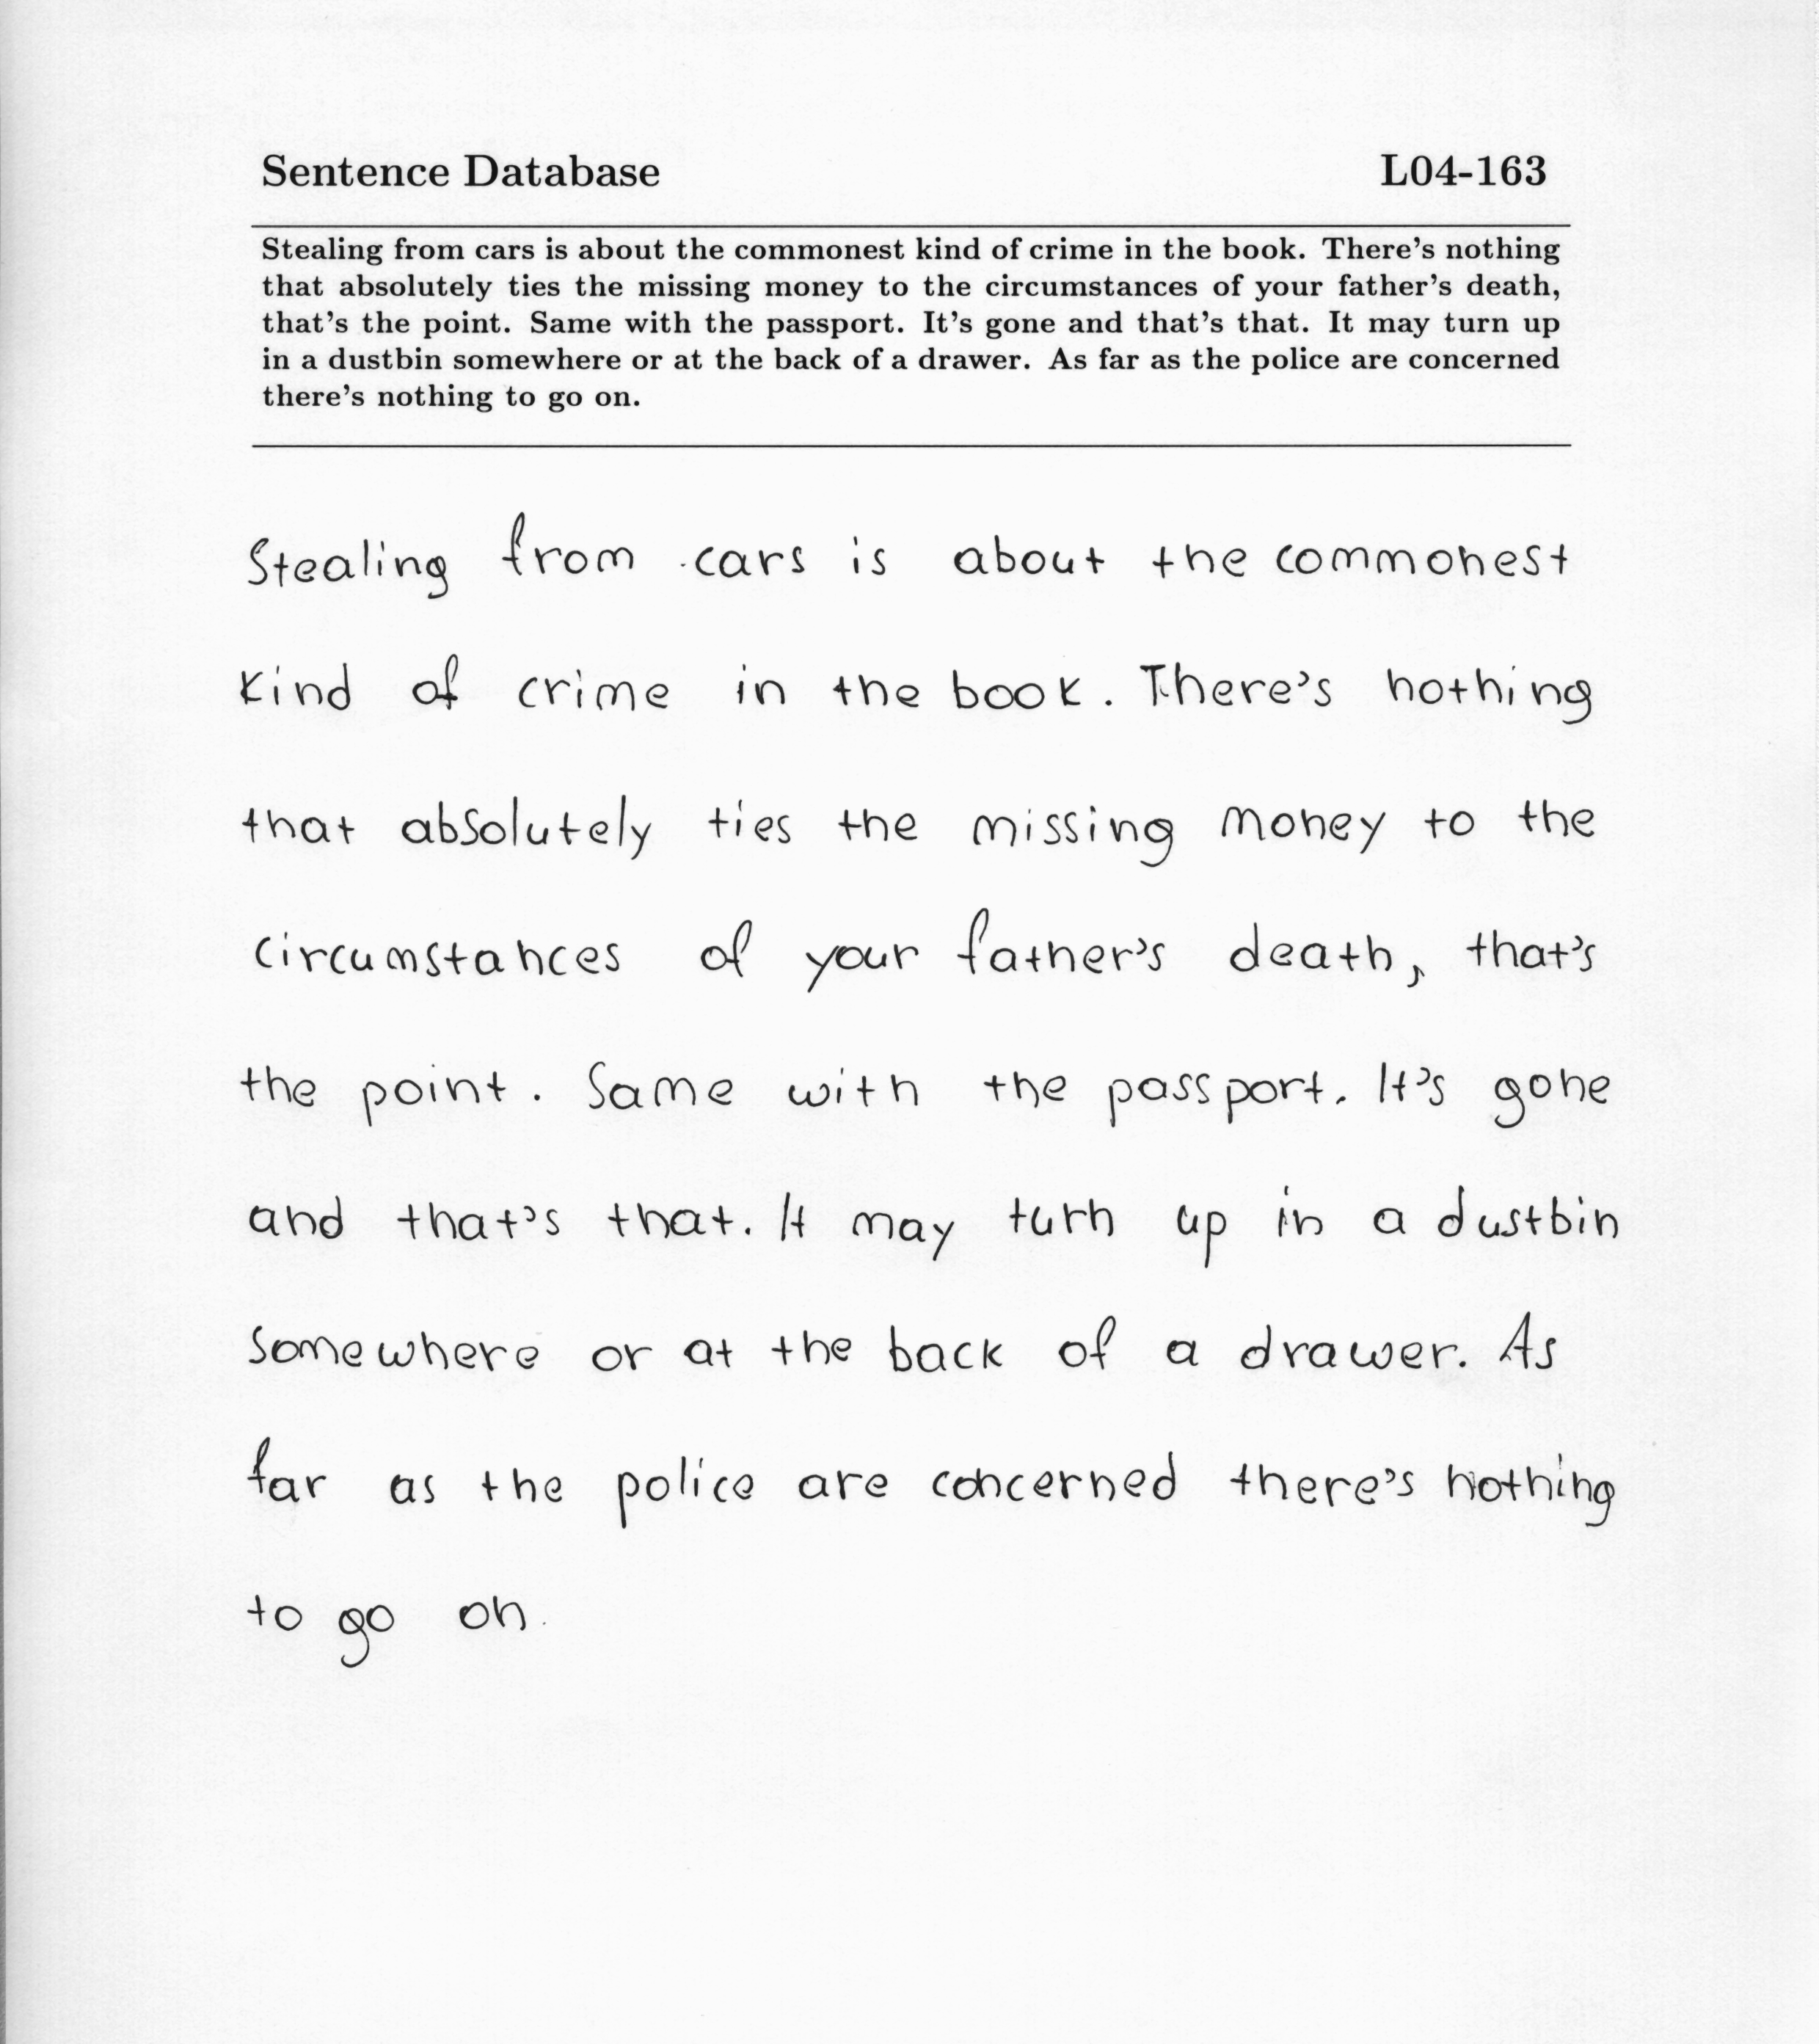 Sentence Database L04-163
Stealing from cars is about the commonest kind of crime in the book. There's nothing
that absolutely ties the missing money to the circumstances of your father's death,
that's the point. Same with the passport. It's gone and that's that. It may turn up
in a dustbin somewhere or at the back of a drawer. As far as the police are concerned
there's nothing to go on.
Stealing from cars is about the commonest
kind of crime in the book. There's nothing
that absolutely ties the missing money to the
circumstances of your father's death, that's
the point. Same with the passport. It's gone
and that's that. It may turn up in a dustbin
somewhere or at the back of a drawer. As
far as the police are concerned there's nothing
to go on.